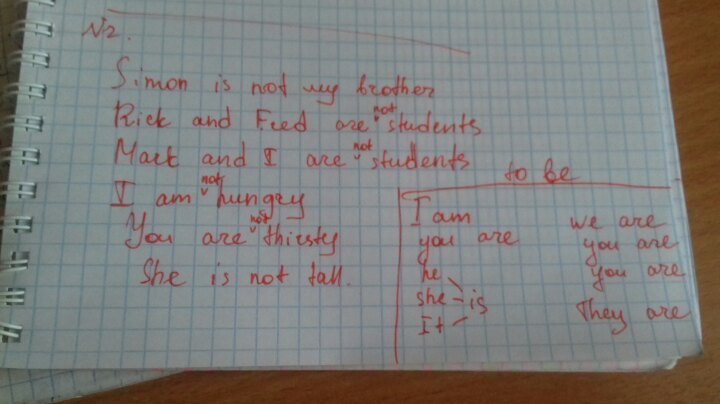 №2.
Simon is not my brother
Rick and Fred are not students
Mark and I are not students
I am not hungry
You are not thirsty
She is not tall.
to be
I am we are
you are you are
he you are
she is
It They are